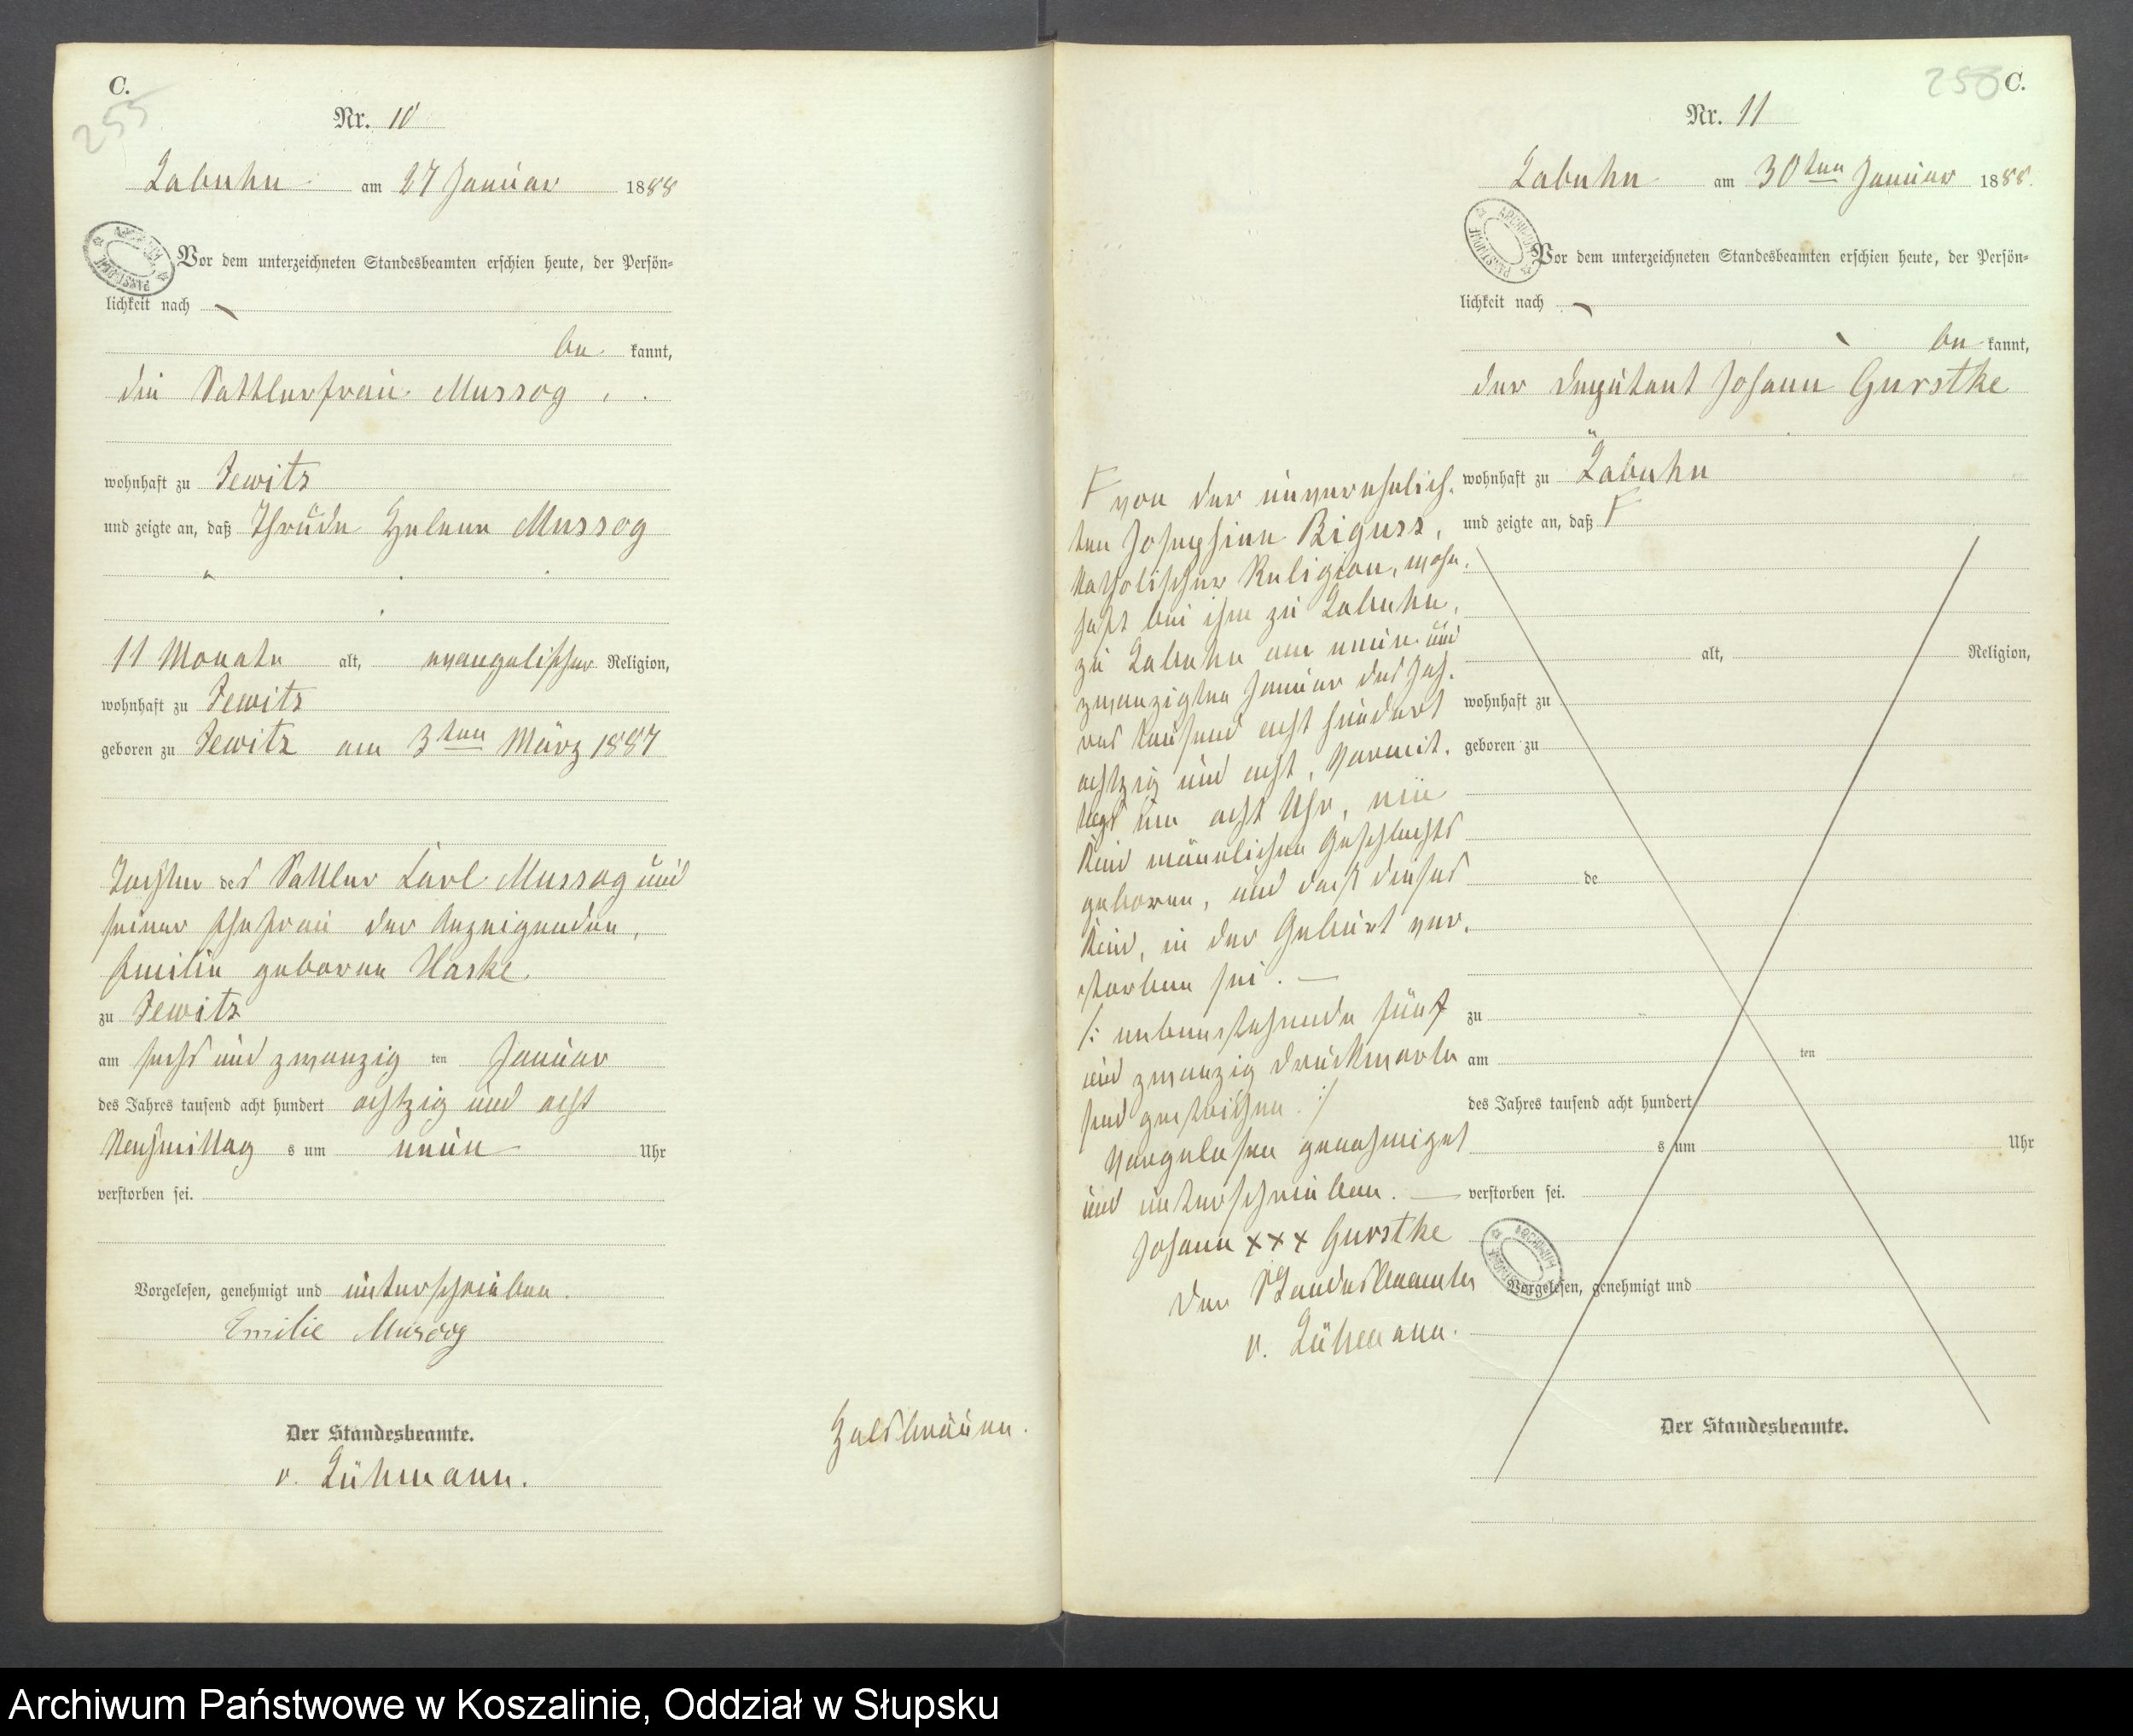 C.
255
Nr. 10
Labuhn am 27 Januar 1888
Vor dem unterzeichneten Standesbeamten erschien heute, der Persön-
lichkeit nach
be kannt,
die Sattlerfrau Mussog,
wohnhaft zu Jewitz
und zeigte an, daß Thrüde Helene Mussog
11 Monate alt, evangelischer Religion,
wohnhaft zu Jewitz
geboren zu Jewitz am 3ten März 1887
Tochter des Sattler Carl Mussog und
seiner Ehefrau der Anzeigenden,
Emilie geborene Haske
zu Jewitz
am sechs und zwanzig ten Januar
des Jahres tausend acht hundert achtzig und acht
Nachmittag s um neun Uhr
verstorben sei.
Vorgelesen, genehmigt und unterschrieben.
Emilie Mussog
Der Standesbeamte.
v. Lühmann.
Halsbräune.
258 C.
Nr. 11
Labuhn am 30ten Januar 1888.
Vor dem unterzeichneten Standesbeamten erschien heute, der Persön-
lichkeit nach
be kannt,
der Deputant Johann Gurstke
wohnhaft zu Labuhn
und zeigte an, daß F
F von der unverehelich-
ten Josephine Biguss,
katholischer Religion, wohn-
haft bei ihm zu Labuhn,
zu Labuhn am neun und
zwanzigten Januar des Jah-
res tausend acht hundert
achtzig und acht, Vormit-
tags um acht Uhr, ein
Kind männlichen Geschlechts
geboren, und daß dieses
Kind, in der Geburt ver-
storben sei. —
/: nebenstehende fünf
und zwanzig Druckworte
sind gestrichen :/
Vorgelesen genehmiget
und unterschrieben. —
Johann xxx Gurstke
Der Standesbeamte
v. Lühmann.
alt, Religion,
wohnhaft zu
geboren zu
de
zu
am ten
des Jahres tausend acht hundert
s um Uhr
verstorben sei.
Vorgelesen, genehmigt und
Der Standesbeamte.
Archiwum Państwowe w Koszalinie, Oddział w Słupsku